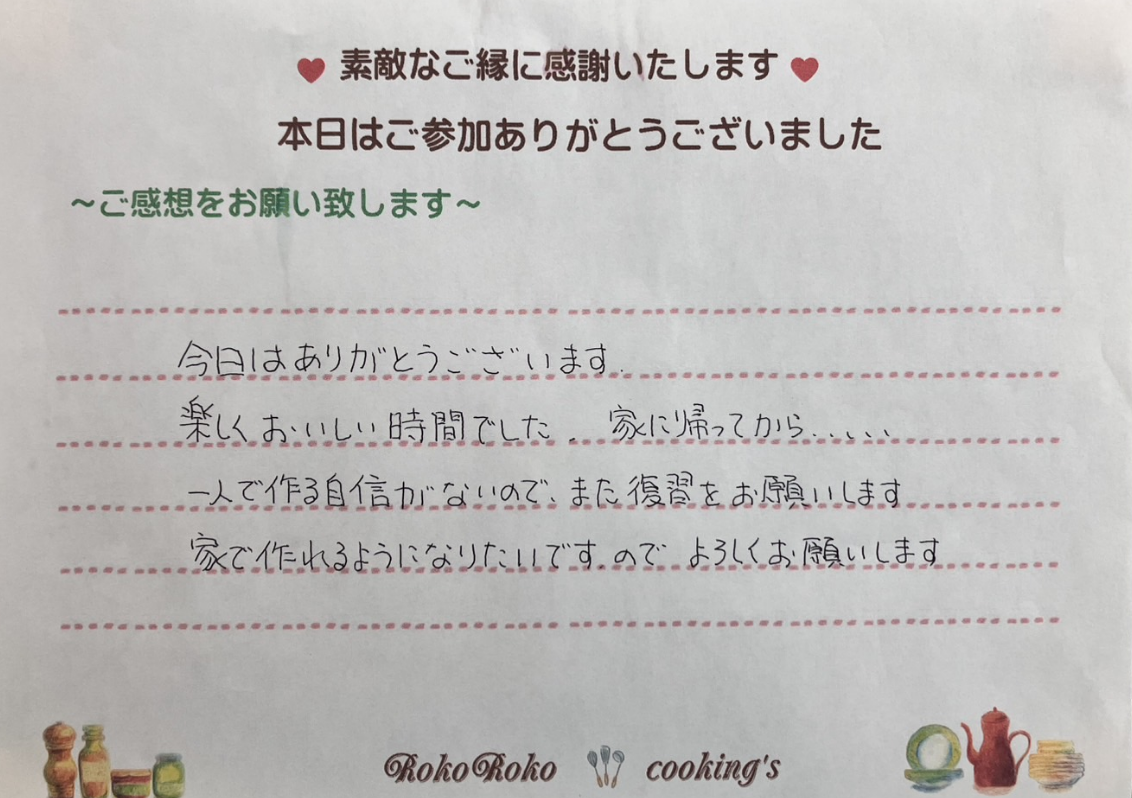 素敵なご縁に感謝いたします
本日はご参加ありがとうございました
～ご感想をお願い致します～
今日はありがとうございます.
楽しくおいしい時間でした. 家に帰ってから.....
一人で作る自信がないので、また復習をお願いします
家で作れるようになりたいです.ので よろしくお願いします
RokoRoko cooking's